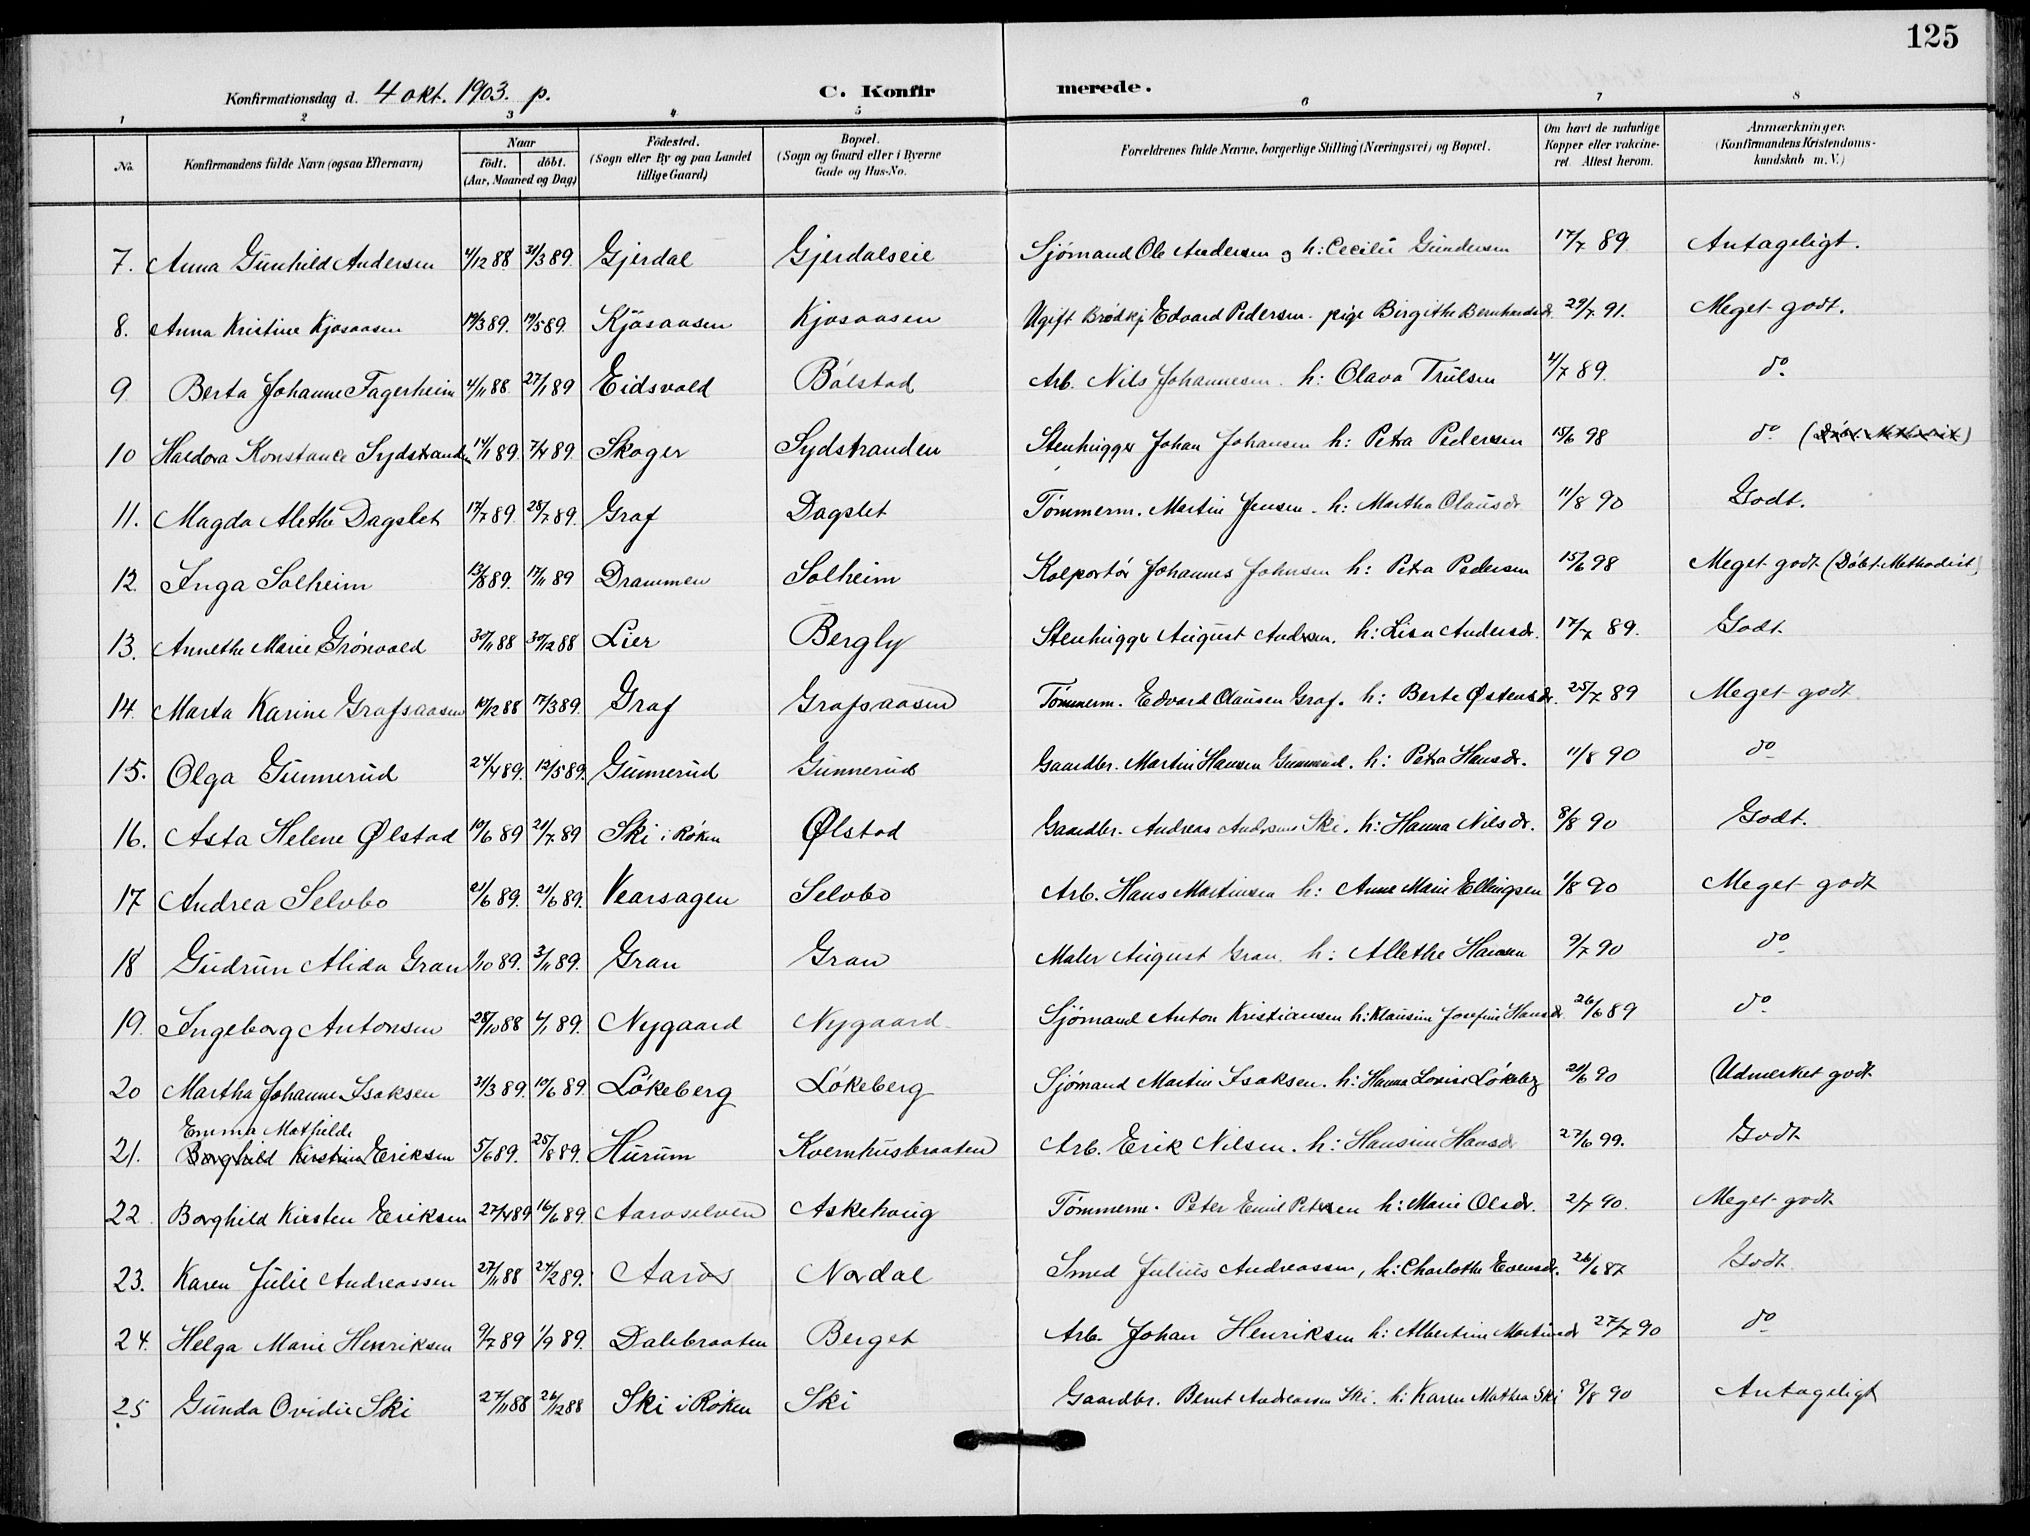 125
Konfirmationsdag d. 4 okt. 1903. p. C. Konfirmerede.
1 2 3 4 5 6 7 8
No. Konfirmandens fulde Navn (ogsaa Efternavn) Naar født. døbt. (Aar, Maaned og Dag) Fødested. (Sogn eller By og paa Landet tillige Gaard) Bopæl. (Sogn og Gaard eller i Byerne Gade og Hus-No. Forældrenes fulde Navne, borgerlige Stilling (Næringsvei) og Bopæl. Om havt de naturlige Kopper eller vakcineret. Attest herom. Anmærkninger. (Konfirmandens Kristendomskundskab m. V.)
7. Anna Gunhild Andersen 4/12 88 31/3 89. Gjerdal Gjerdalseie Sjømand Ole Andersen og h: Cecilie Gundersen 17/7 89 Antageligt.
8. Anna Kristine Kjosaasen 19/3 89. 19/5 89. Kjøsaasen Kjosaasen Ugift Brødkj. Edvard Pedersen. pige Birgithe Bernhardsdr. 29/7 91. Meget godt.
9 Berta Johanne Fagerheim 4/11 88 27/1 89 Eidsvold Bålstad Arb. Nils Johannesen. h: Olava Trulsen 4/7 89. do
10 Haldora Konstance Sydstranden 14/1 89. 7/4 89. Skoger Sydstranden Stenhugger Johan Johansen h: Petra Pedersen 15/6 98 do (Døbt Methodist)
11. Magda Alethe Dagslet 17/7 89. 28/7 89. Graf Dagslet Tømmerm. Martin Jensen. h: Martha Olausdr. 11/8 90 Godt.
12. Inga Solheim 13/8 89. 17/11 89 Drammen Solheim Kolportør Johannes Johnsen h: Petra Pedersen 15/6 98 Meget godt (Døbt Methodist)
13. Annethe Marie Grønvold 30/11 88 30/12 88 Lier Bergly Stenhugger August Andersen. h: Lisa Andersdr. 17/7 89. Godt.
14. Marta Karine Grafsaasen 10/12 88 17/3 89. Graf Grafsaasen Tømmerm. Edvard Olausen Graf. h: Berte Østensdr. 25/7 89 Meget godt
15. Olga Gunnerud 24/4 89. 12/5 89. Gunnerud Gunnerud Gaardbr. Martin Hansen Gunnerud. h: Petra Hansdr. 11/8 90 do
16. Asta Helene Ølstad 10/6 89 21/7 89 Ski i Røken Ølstad Gaardbr. Andreas Andersen Ski. h: Hanna Nilsdr. 8/8 90 Godt.
17 Andrea Selvbo 21/6 89. 21/6 89. Vearsagen Selvbo Arb. Hans Martinsen h: Anne Marie Ellingsen 1/8 90 Meget godt
18 Gudrun Alida Gran 1/10 89. 3/11 89. Gran Gran Maler August Gran. h: Allethe Hansen 9/7 90 do
19. Ingeborg Antonsen 28/10 88 6/1 89. Nygaard Nygaard Sjømand Anton Kristiansen h: Klausine Josefine Hansdr. 26/6 89 do
20 Martha Johanne Isaksen 31/3 89. 10/6 89. Løkeberg Løkeberg Sjømand Martin Isaksen. h: Hanna Lovise Løkeberg 21/6 90 Udmerket godt
Emma Mathilde
21. Borghild Kirstine Eriksen 5/6 89. 25/8 89. Hurum Kvernhusbraaten Arb. Erik Nilsen. h: Hansine Hansdr 27/6 99. Godt
22. Borghild Kirsten Eriksen 27/4 89 16/6 89. Aaroselven Askehaug Tømmerm. Peter Emil Petersen h: Marie Olsdr. 2/7 90. Meget godt
23. Karen Julie Andreassen 27/11 88 24/2 89. Aaros Nordal Smed Julius Andreassen, h: Charlothe Evensdr. 26/6 87 Godt
24. Helga Marie Henriksen 9/7 89 1/9 89. Dalebraaten Berget Arb. Johan Henriksen h: Albertine Martinsdr 27/7 90 do
25 Gunda Ovidie Ski 27/11 88 26/12 88 Ski i Røken Ski Gaardbr. Bernt Andreassen Ski. h: Karen Mathea Ski 8/8 90 Antageligt